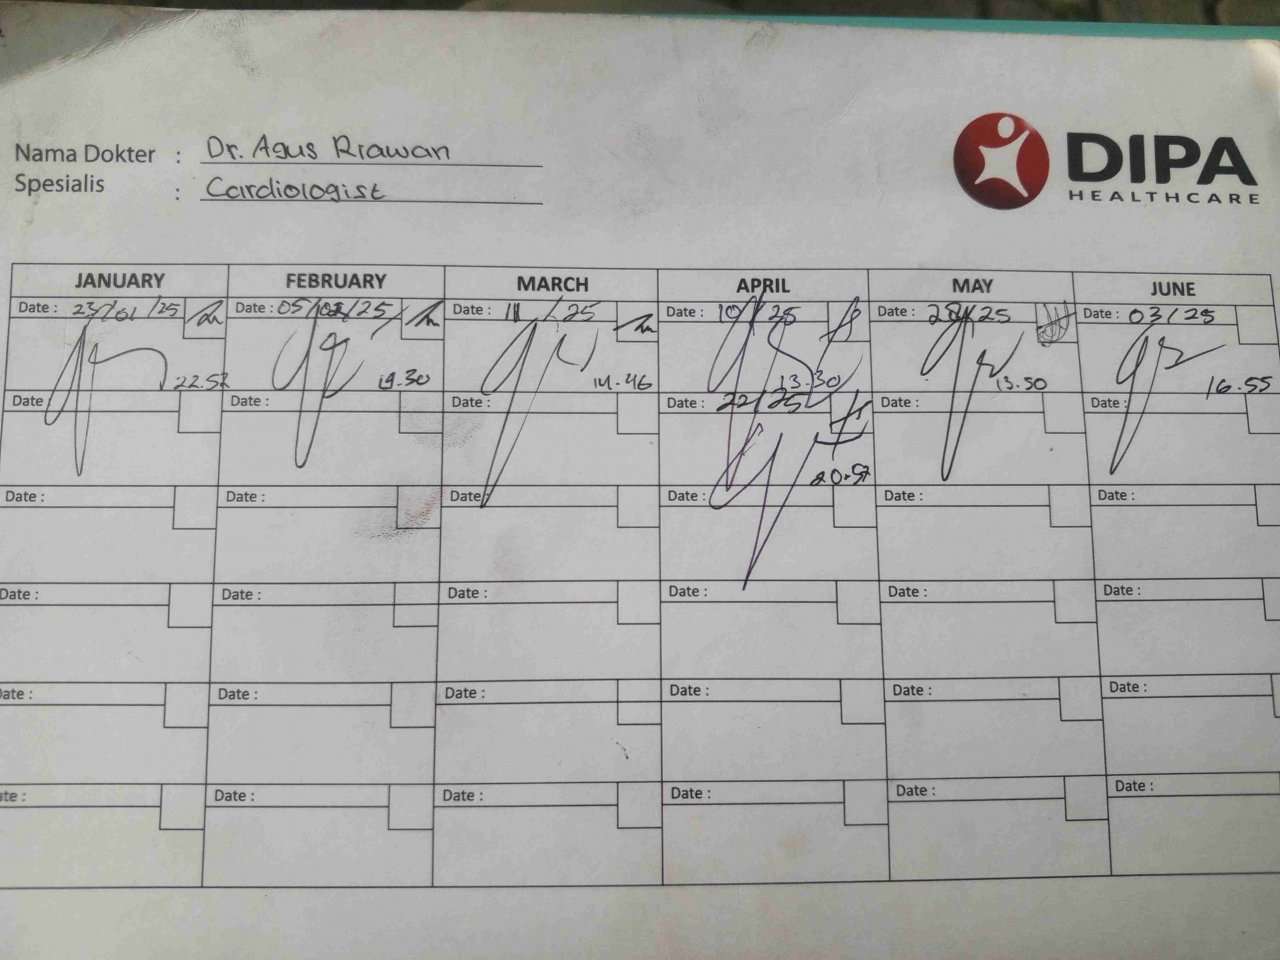 Nama Dokter : Dr. Agus Riawan
Spesialis : Cardiologist
DIPA
HEALTHCARE
JANUARY FEBRUARY MARCH APRIL MAY JUNE
Date : 23/01/25 Date : 05/02/25 Date : 11/25 Date : 10/25 Date : /25 Date : 03/25
22.52 19.30 14.46 13.30 13.50 16.55
Date Date : Date : Date : 22/25 Date : Date :
Date : Date : Date Date : Date : Date :
Date : Date : Date : Date : Date : Date :
ate : Date : Date : Date : Date : Date :
te : Date : Date : Date : Date : Date :